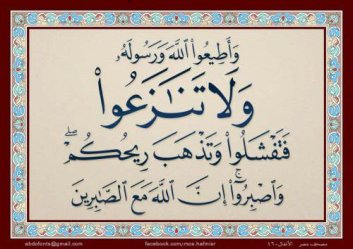 وَأَطِيعُوا۟ ٱللَّهَ وَرَسُولَهُۥ
وَلَا تَنَٰزَعُوا۟
فَتَفْشَلُوا۟ وَتَذْهَبَ رِيحُكُمْ ۖ
وَٱصْبِرُوٓا۟ ۚ إِنَّ ٱللَّهَ مَعَ ٱلصَّٰبِرِينَ
abdofonts@gmail.com facebook.com/mos.hafmisr مصحف مصر الأنفال-٤٦